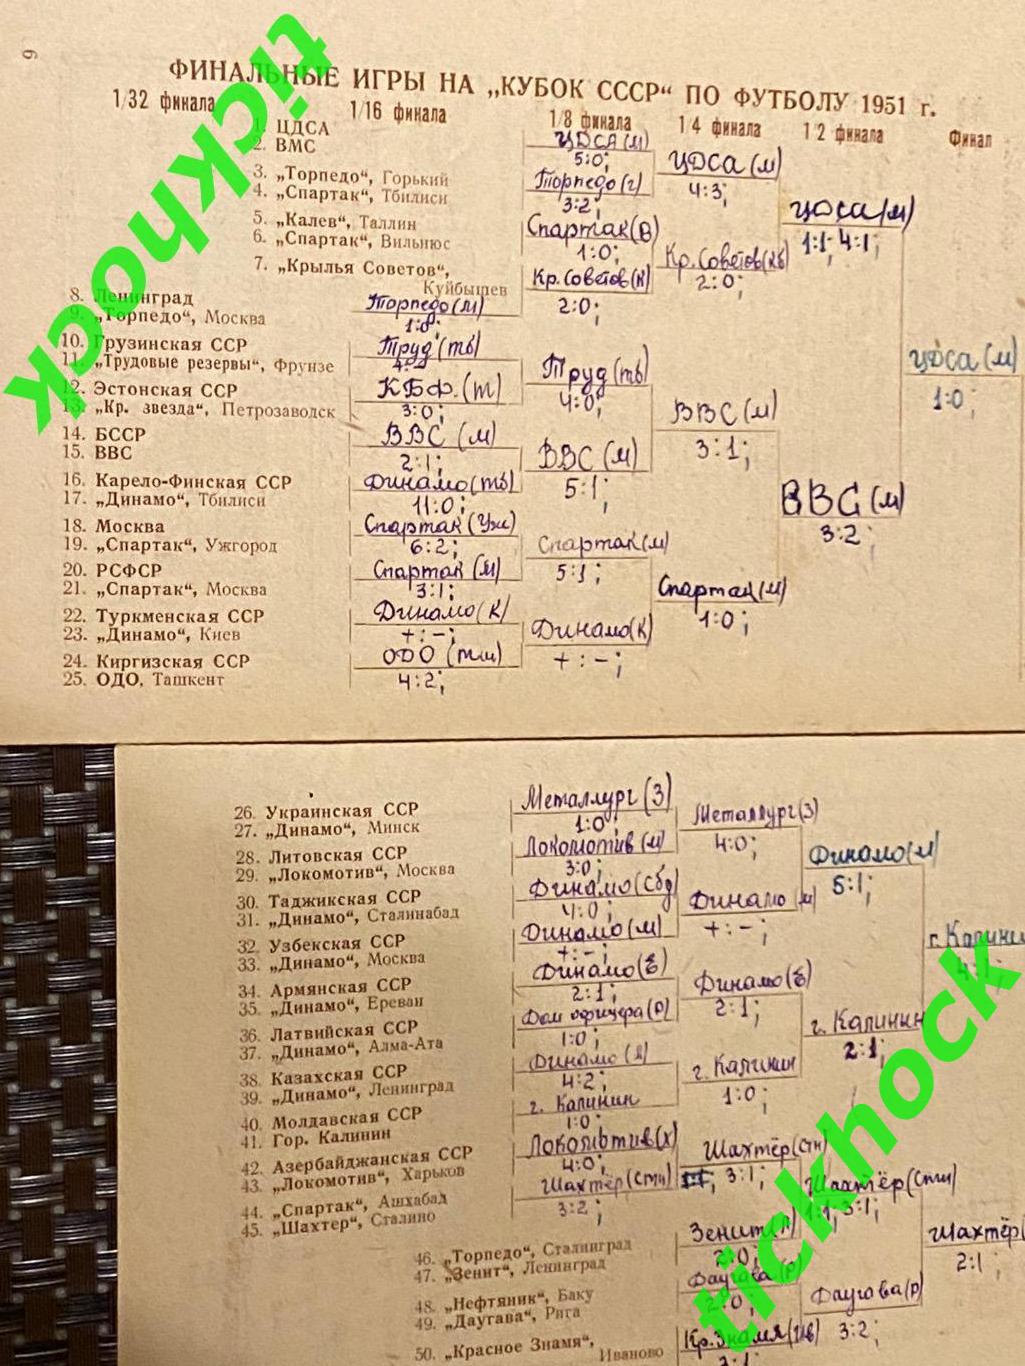 9
ФИНАЛЬНЫЕ ИГРЫ НА „КУБОК СССР" ПО ФУТБОЛУ 1951 г.
1/32 финала 1/16 финала 1/8 финала 1/4 финала 1/2 финала Финал
1. ЦДСА
2. ВМС
3. „Торпедо", Горький
4. „Спартак", Тбилиси
5. „Калев", Таллин
6. „Спартак", Вильнюс
7. „Крылья Советов", Куйбышев
8. Ленинград
9. „Торпедо", Москва
10. Грузинская ССР
11. „Трудовые резервы", Фрунзе
12. Эстонская ССР
13. „Кр. звезда", Петрозаводск
14. БССР
15. ВВС
16. Карело-Финская ССР
17. „Динамо", Тбилиси
18. Москва
19. „Спартак", Ужгород
20. РСФСР
21. „Спартак", Москва
22. Туркменская ССР
23. „Динамо", Киев
24. Киргизская ССР
25. ОДО, Ташкент
Торпедо (м)
1:0;
Труд (тб)
КБФ. (т)
3:0;
ВВС (м)
2:1;
Динамо (тб)
11:0;
Спартак (Уж)
6:2;
Спартак (м)
3:1;
Динамо (к)
+:-;
ОДО (тш)
4:2;
ЦДСА (м)
5:0;
Торпедо (г)
3:2;
Спартак (В)
1:0;
Кр. Советов (к)
2:0;
Труд (тб)
4:0;
ВВС (м)
5:1;
Спартак (м)
5:1;
Динамо (к)
+:-;
ЦДСА (м)
4:3;
Кр. Советов (кб)
2:0;
ВВС (м)
3:1;
Спартак (м)
1:0;
ЦДСА (м)
1:1; 4:1;
ВВС (м)
3:2;
ЦДСА (м)
1:0;
26. Украинская ССР
27. „Динамо", Минск
28. Литовская ССР
29. „Локомотив", Москва
30. Таджикская ССР
31. „Динамо", Сталинабад
32. Узбекская ССР
33. „Динамо", Москва
34. Армянская ССР
35. „Динамо", Ереван
36. Латвийская ССР
37. „Динамо", Алма-Ата
38. Казахская ССР
39. „Динамо", Ленинград
40. Молдавская ССР
41. Гор. Калинин
42. Азербайджанская ССР
43. „Локомотив", Харьков
44. „Спартак", Ашхабад
45. „Шахтер", Сталино
46. „Торпедо", Сталинград
47. „Зенит", Ленинград
48. „Нефтяник", Баку
49. „Даугава", Рига
50. „Красное Знамя", Иваново
Металлург (З)
1:0;
Локомотив (м)
3:0;
Динамо (сбд)
4:0;
Динамо (м)
+:-;
Динамо (Е)
2:1;
Дом офицера (О)
1:0;
Динамо (л)
4:2;
г. Калинин
1:0;
Локомотив (х)
4:0;
Шахтёр (Стн)
3:2;
Металлург (З)
4:0;
Динамо (м)
+:-;
Динамо (Е)
2:1;
г. Калинин
1:0;
Шахтёр (Стн)
3:1;
Зенит (л)
2:0;
Даугава (р)
2:0;
Кр. Знамя (Ив)
Динамо (м)
5:1;
г. Калинин
2:1;
Шахтёр (Стн)
1:1; 3:1;
Даугава (р)
3:2;
г. Калинин
4:1;
Шахтёр (
2:1;
tickhock
tickhock